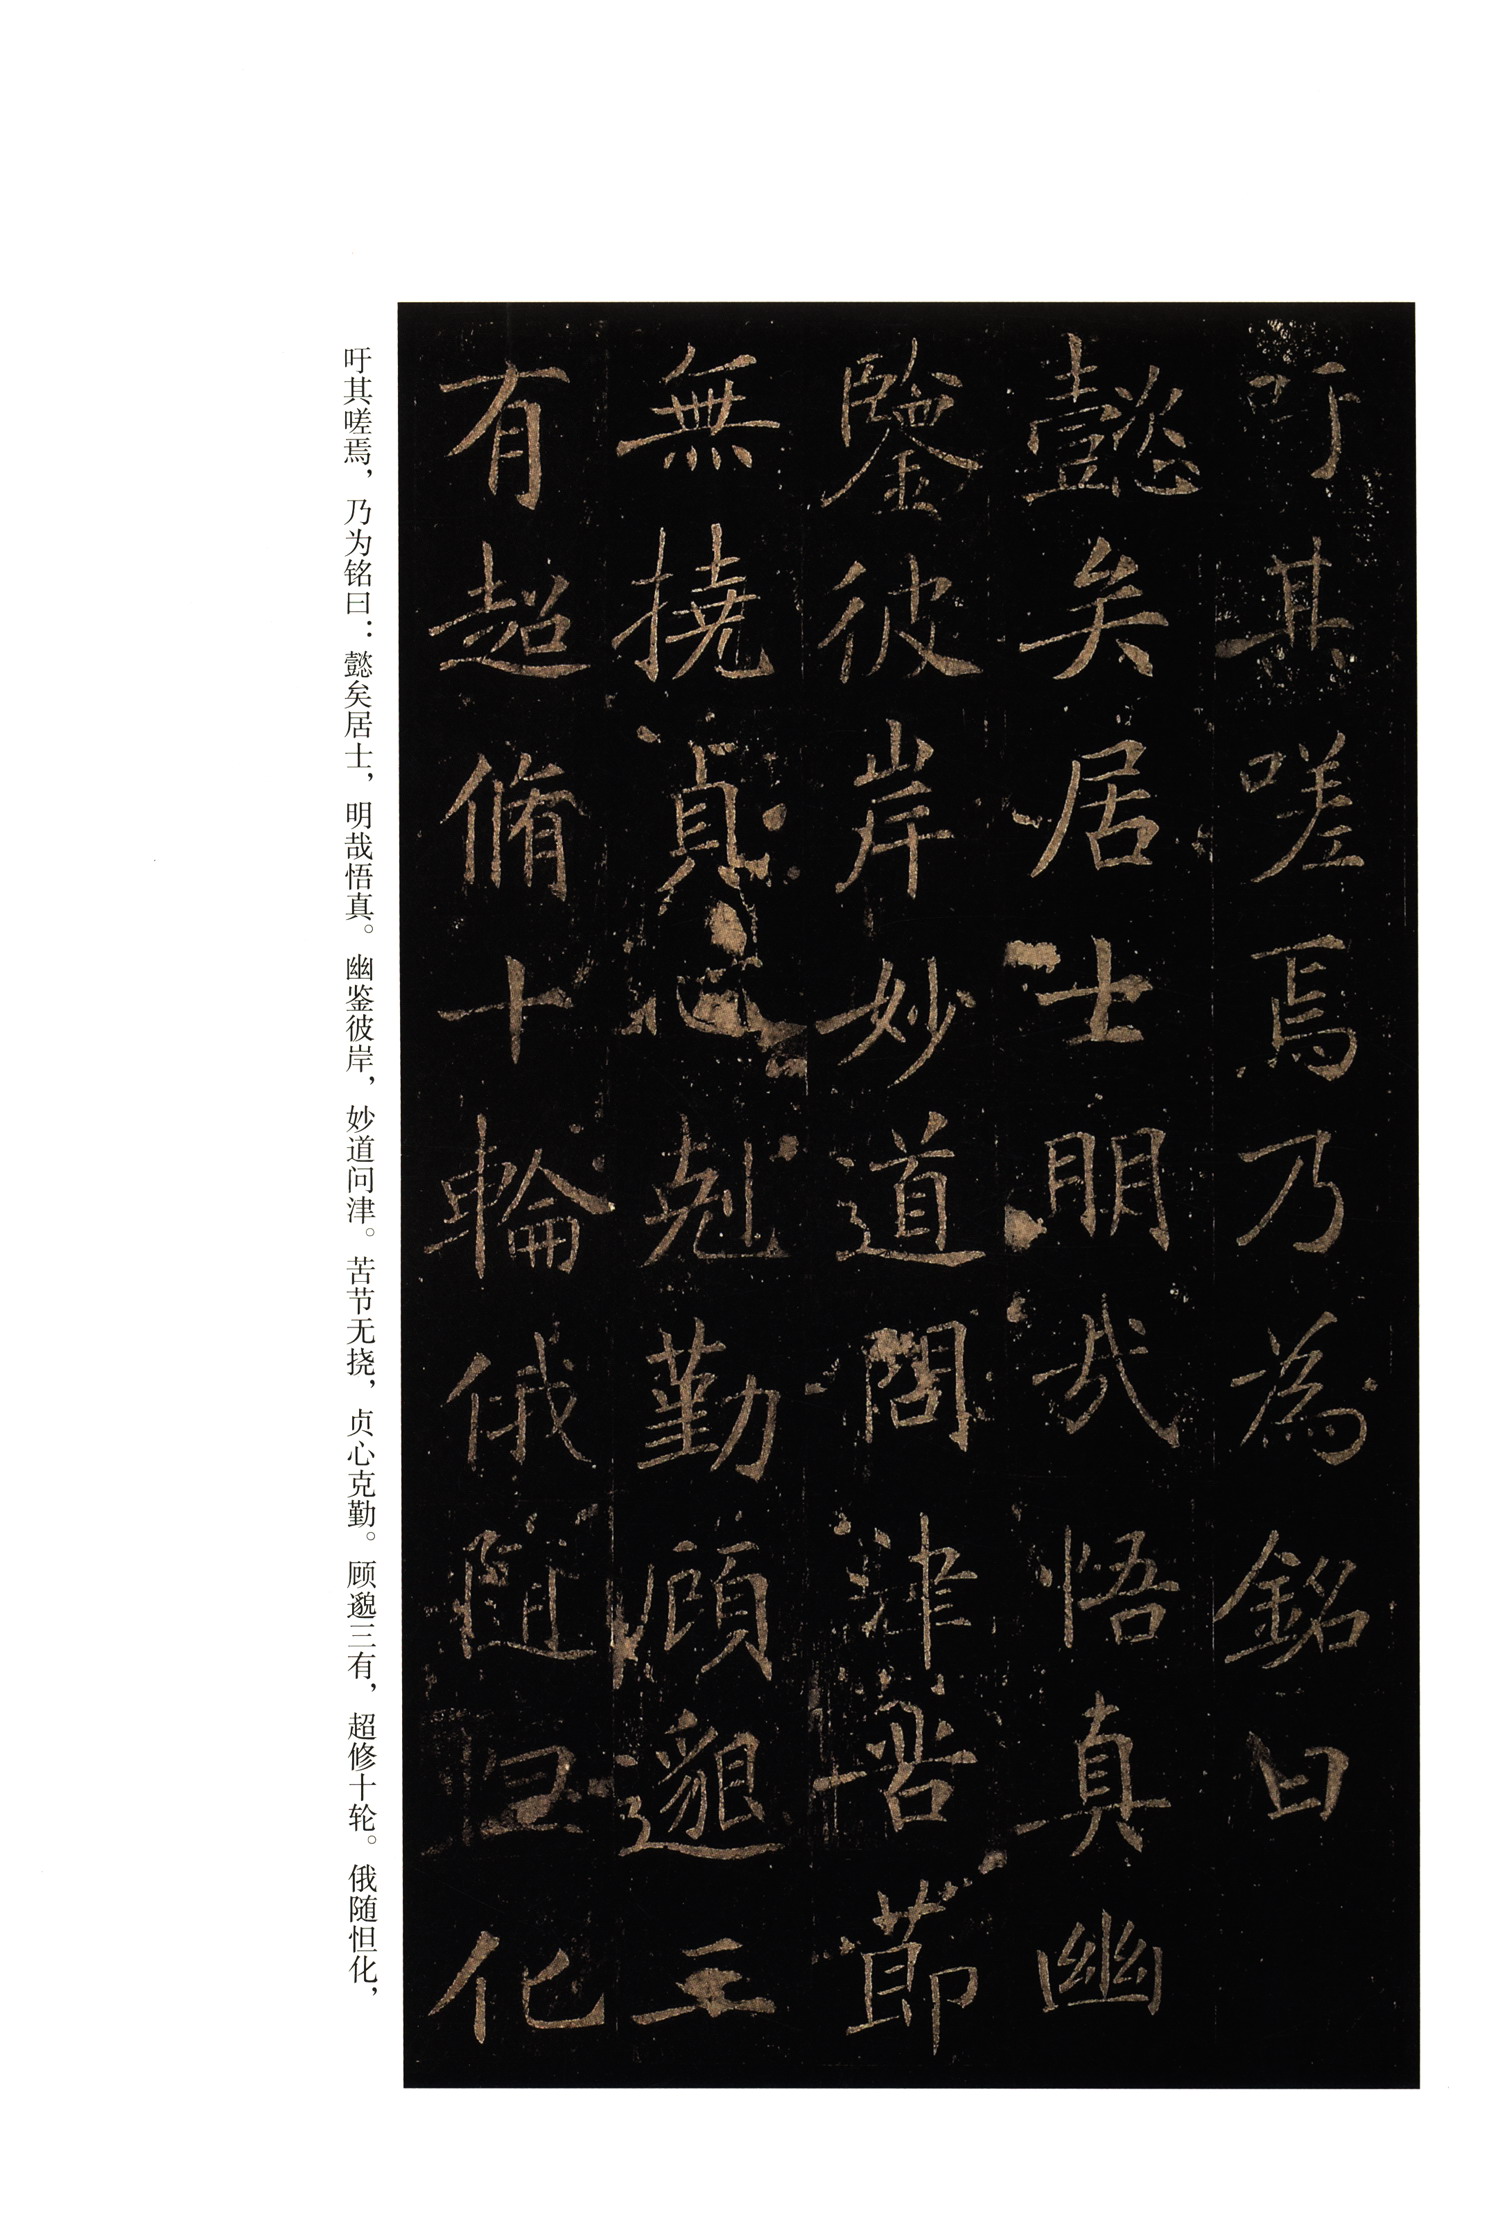 吁其嗟焉乃為銘曰
懿矣居士明哉悟真幽
鑒彼岸妙道問津苦節
無撓貞心剋勤顧邈三
有超脩十輪俄隨怛化
吁其嗟焉，乃为铭曰：懿矣居士，明哉悟真。幽鉴彼岸，妙道问津。苦节无挠，贞心克勤。顾邈三有，超修十轮。俄随怛化，